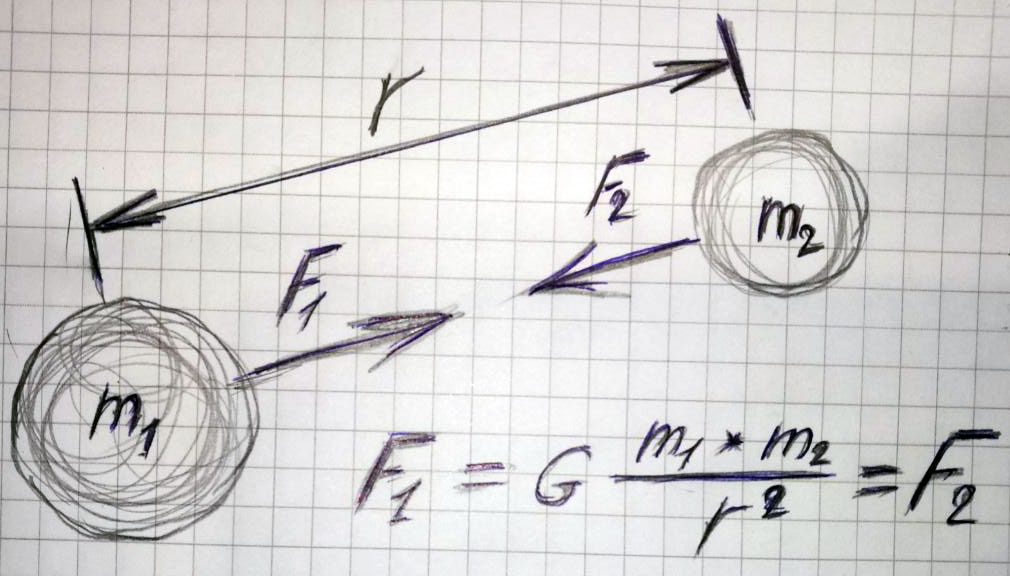 r
F₂
m₂
F₁
m₁
F₁ = G (m₁ * m₂) / r² = F₂